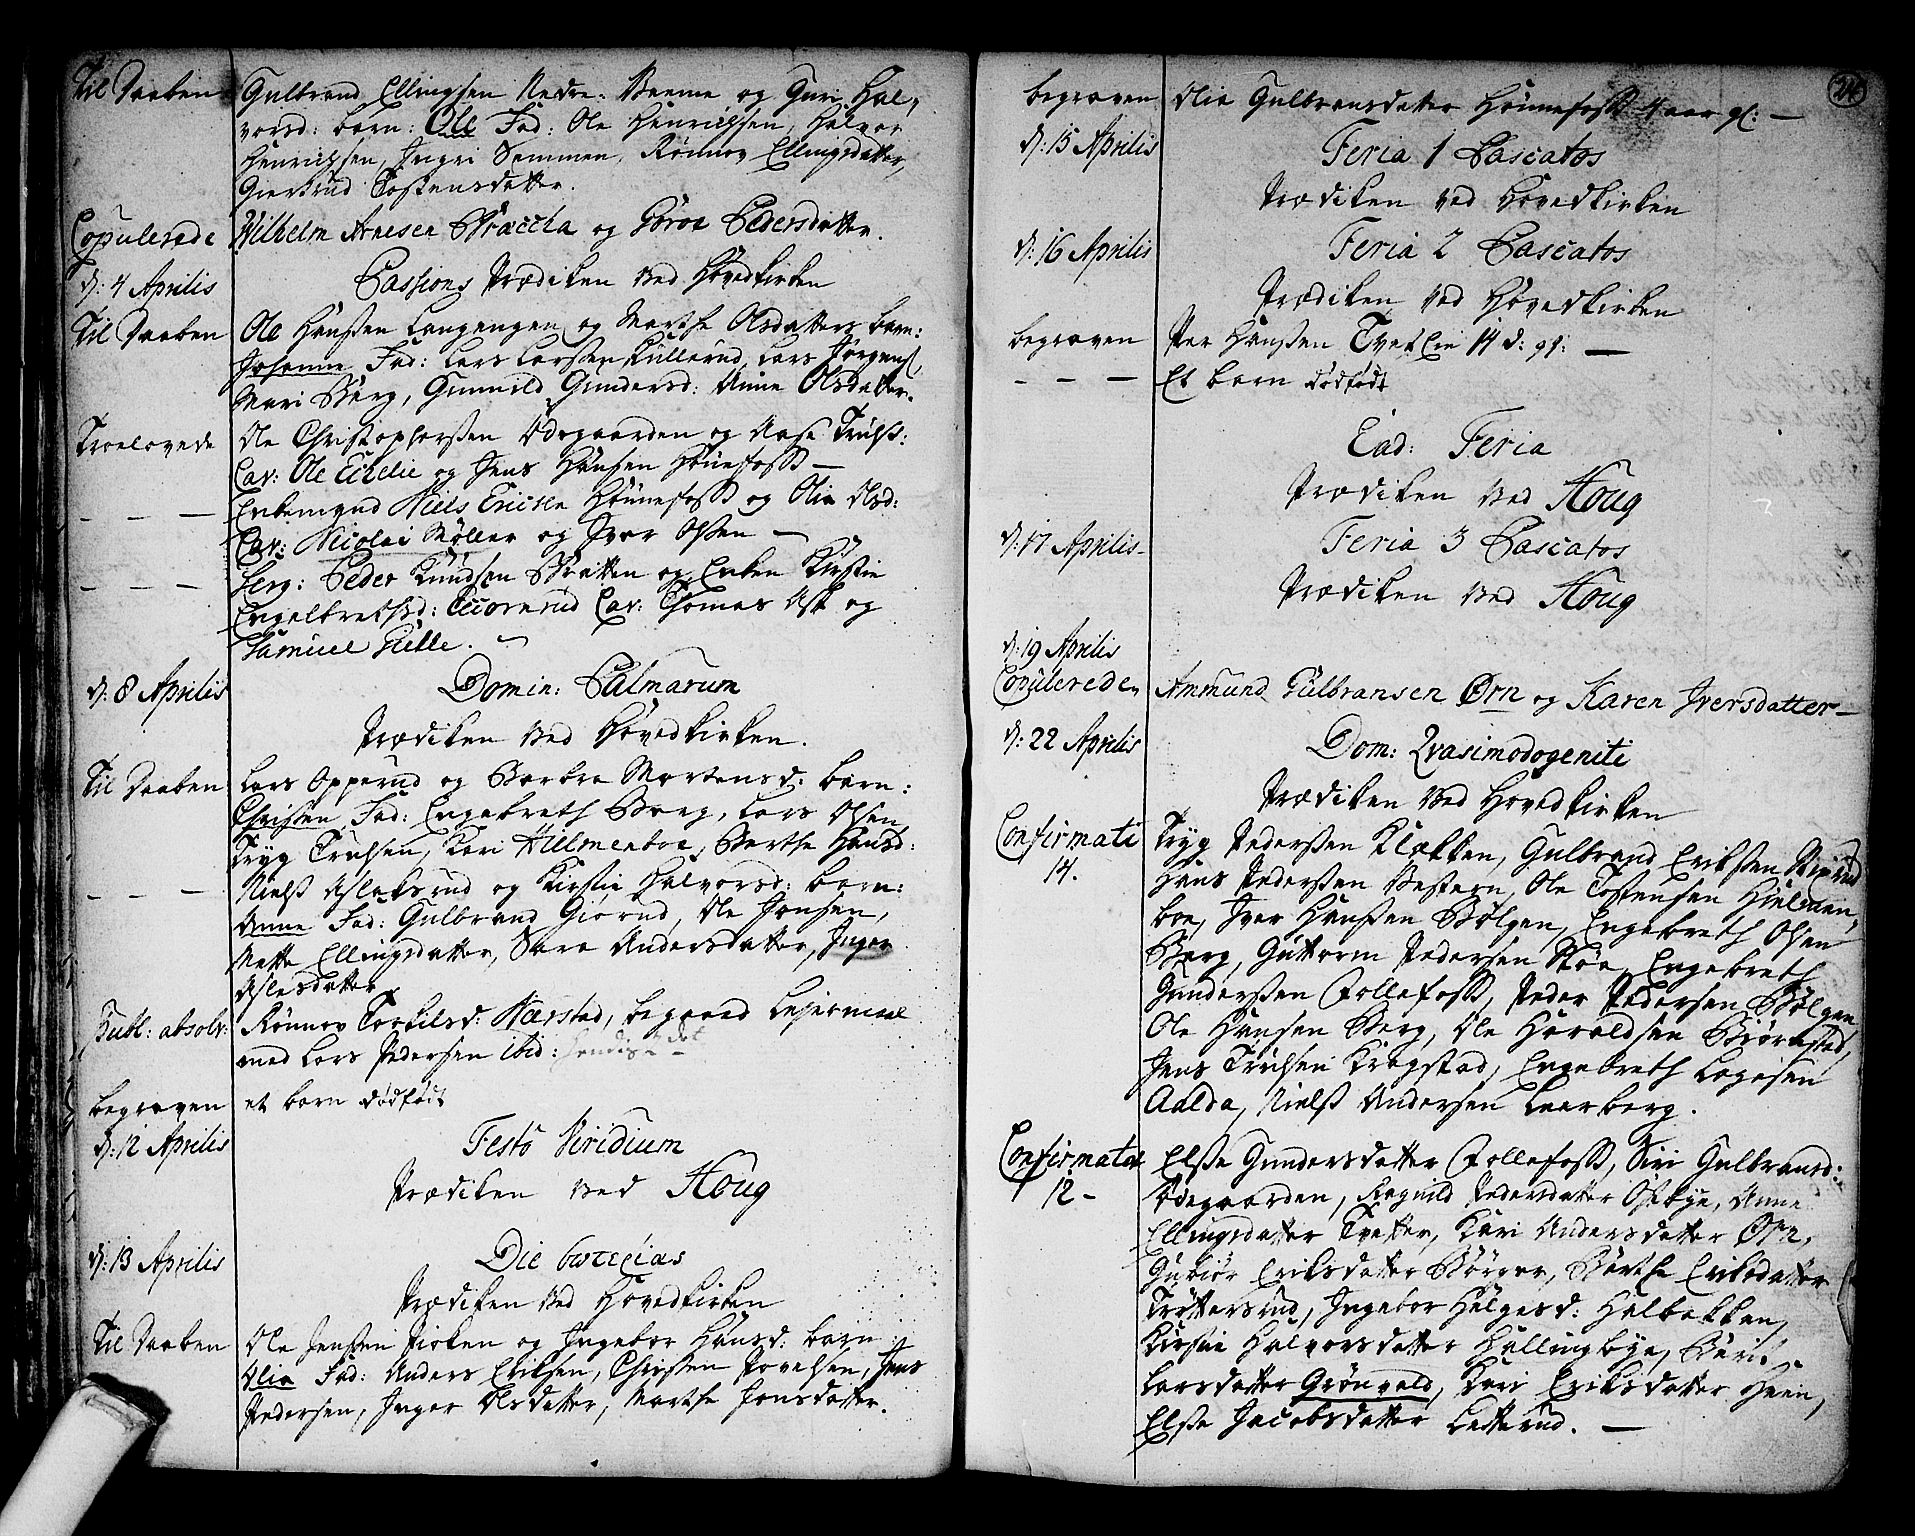 Til Daaben Gulbrand Ellingsen Nedre og Guri Hal-
vorsd: barn: Ole Fad: Ole Henrichsen, Halvor
Henrichsen, Ingri Semmen, Rønnov Ellingsdatter,
Giertrud Tostensdatter.
Copulerede Wilhelm Arnesen Bræccha og Goroe Pedersdatter.
d: 4 Aprilis Passions Prædiken ved Hovedkirken
Til Daaben Ole Hanssen Langangen og Marthe Olsdatters barn:
Johanne Fad: Lars Larssen Lars Jørgens,
Mari Berg, Gunnild Gundersd: Anne Olsdatter.
Troelovede Ole Christophersen Ødegaarden og Aase Truls:
Cav: Ole Eckelie og Jens Hansen Hønefoss —
— — — Enkemand Niels Ericsen Hønnefoss og Olia Olsd:
Cav: Nicolai Møller og Iver Olssen —
— — — Serg: Peder Knudsen Bratten og Enken Kirstie
Engelbrethsd: Cav: Thomas Ask og
Samuel
d: 8 Aprilis Domin: Palmarum
Prædiken ved Hovedkirken.
Til Daaben Lars Opperud og Barbra Mortensd: barn:
Christen Fad: Engebreth Berg, Lars Olsen
Tryg Trulsen, Kari Hillmenboe, Berthe Hansd:
— — — Niels Aslaksrud og Kirstie Halvorsd: barn:
Anne Fad: Gulbrand Giørud, Ole Jonsen,
Mette Ellingsdatter, Sara Andersdatter, Inger
Aslesdatter
Publ: absolv: Rønnov Torkilsd: Harstad, begaaed Lejermaal
med Lars Pedersen ibid:
begraven et barn dødfødt
d: 12 Aprilis Festo Viridium
Prædiken ved Houg
d: 13 Aprilis Die
Prædiken ved Hovedkirken
Til Daaben Ole Jenssen og Ingebor Hansd: barn
Olia Fad: Anders Eriksen, Christen Povelsen, Jens
Pedersen, Inger Olsdatter, Marthe Jonsdatter.
24
begraven Olia Gulbransdatter Hønnefoss 4 aar gl: —
d: 15 Aprilis Feria 1 Pascatos
Prædiken ved Hovedkirken
d: 16 Aprilis Feria 2 Pascatos
Prædiken ved Hovedkirken
begraven Per Hanssen 14 d: gl: —
— — — Et barn dødfødt
Ead: Feria
Prædiken ved Houg
d: 17 Aprilis Feria 3 Pascatos
Prædiken ved Houg
d: 19 Aprilis
Copulereden Ammund Gulbransen Ørn og Karen Iversdatter —
d: 22 Aprilis Dom: Qvasimodogeniti
Prædiken ved Hovedkirken
Confirmati Tryg Pederssen Klækken, Gulbrand Erikssen
14. Hans Pederssen Vestern, Ole Tostensen Hielmen-
boe, Iver Hanssen Bølgen, Engebreth Olsen
Berg, Guttorm Pedersen Støe, Engebreth
Gunderssen Follefoss, Peder Pedersen Bølgen
Ole Hansen Berg, Ole Haraldsen Biørnstad,
Jens Trulsen Kragstad, Engebreth
Aalda, Niels Andersen Leerberg.
Confirmatæ Else Gundersdatter Follefoss, Siri Gulbransd:
12 — Ødegaarden, Ragnild Pedersdatter Anne
Ellingsdatter Tvetter, Kari Andersdatter Ørn,
Gubiør Eriksdatter Børger, Berthe Eriksdatter
Trøttersrud, Ingebor Helgesd: Helbakken,
Kirstie Halvorsdatter Hallingbye, Berit
Larsdatter Grønvold, Kari Eriksdatter Heen,
Else Jacobsdatter Letterud. —